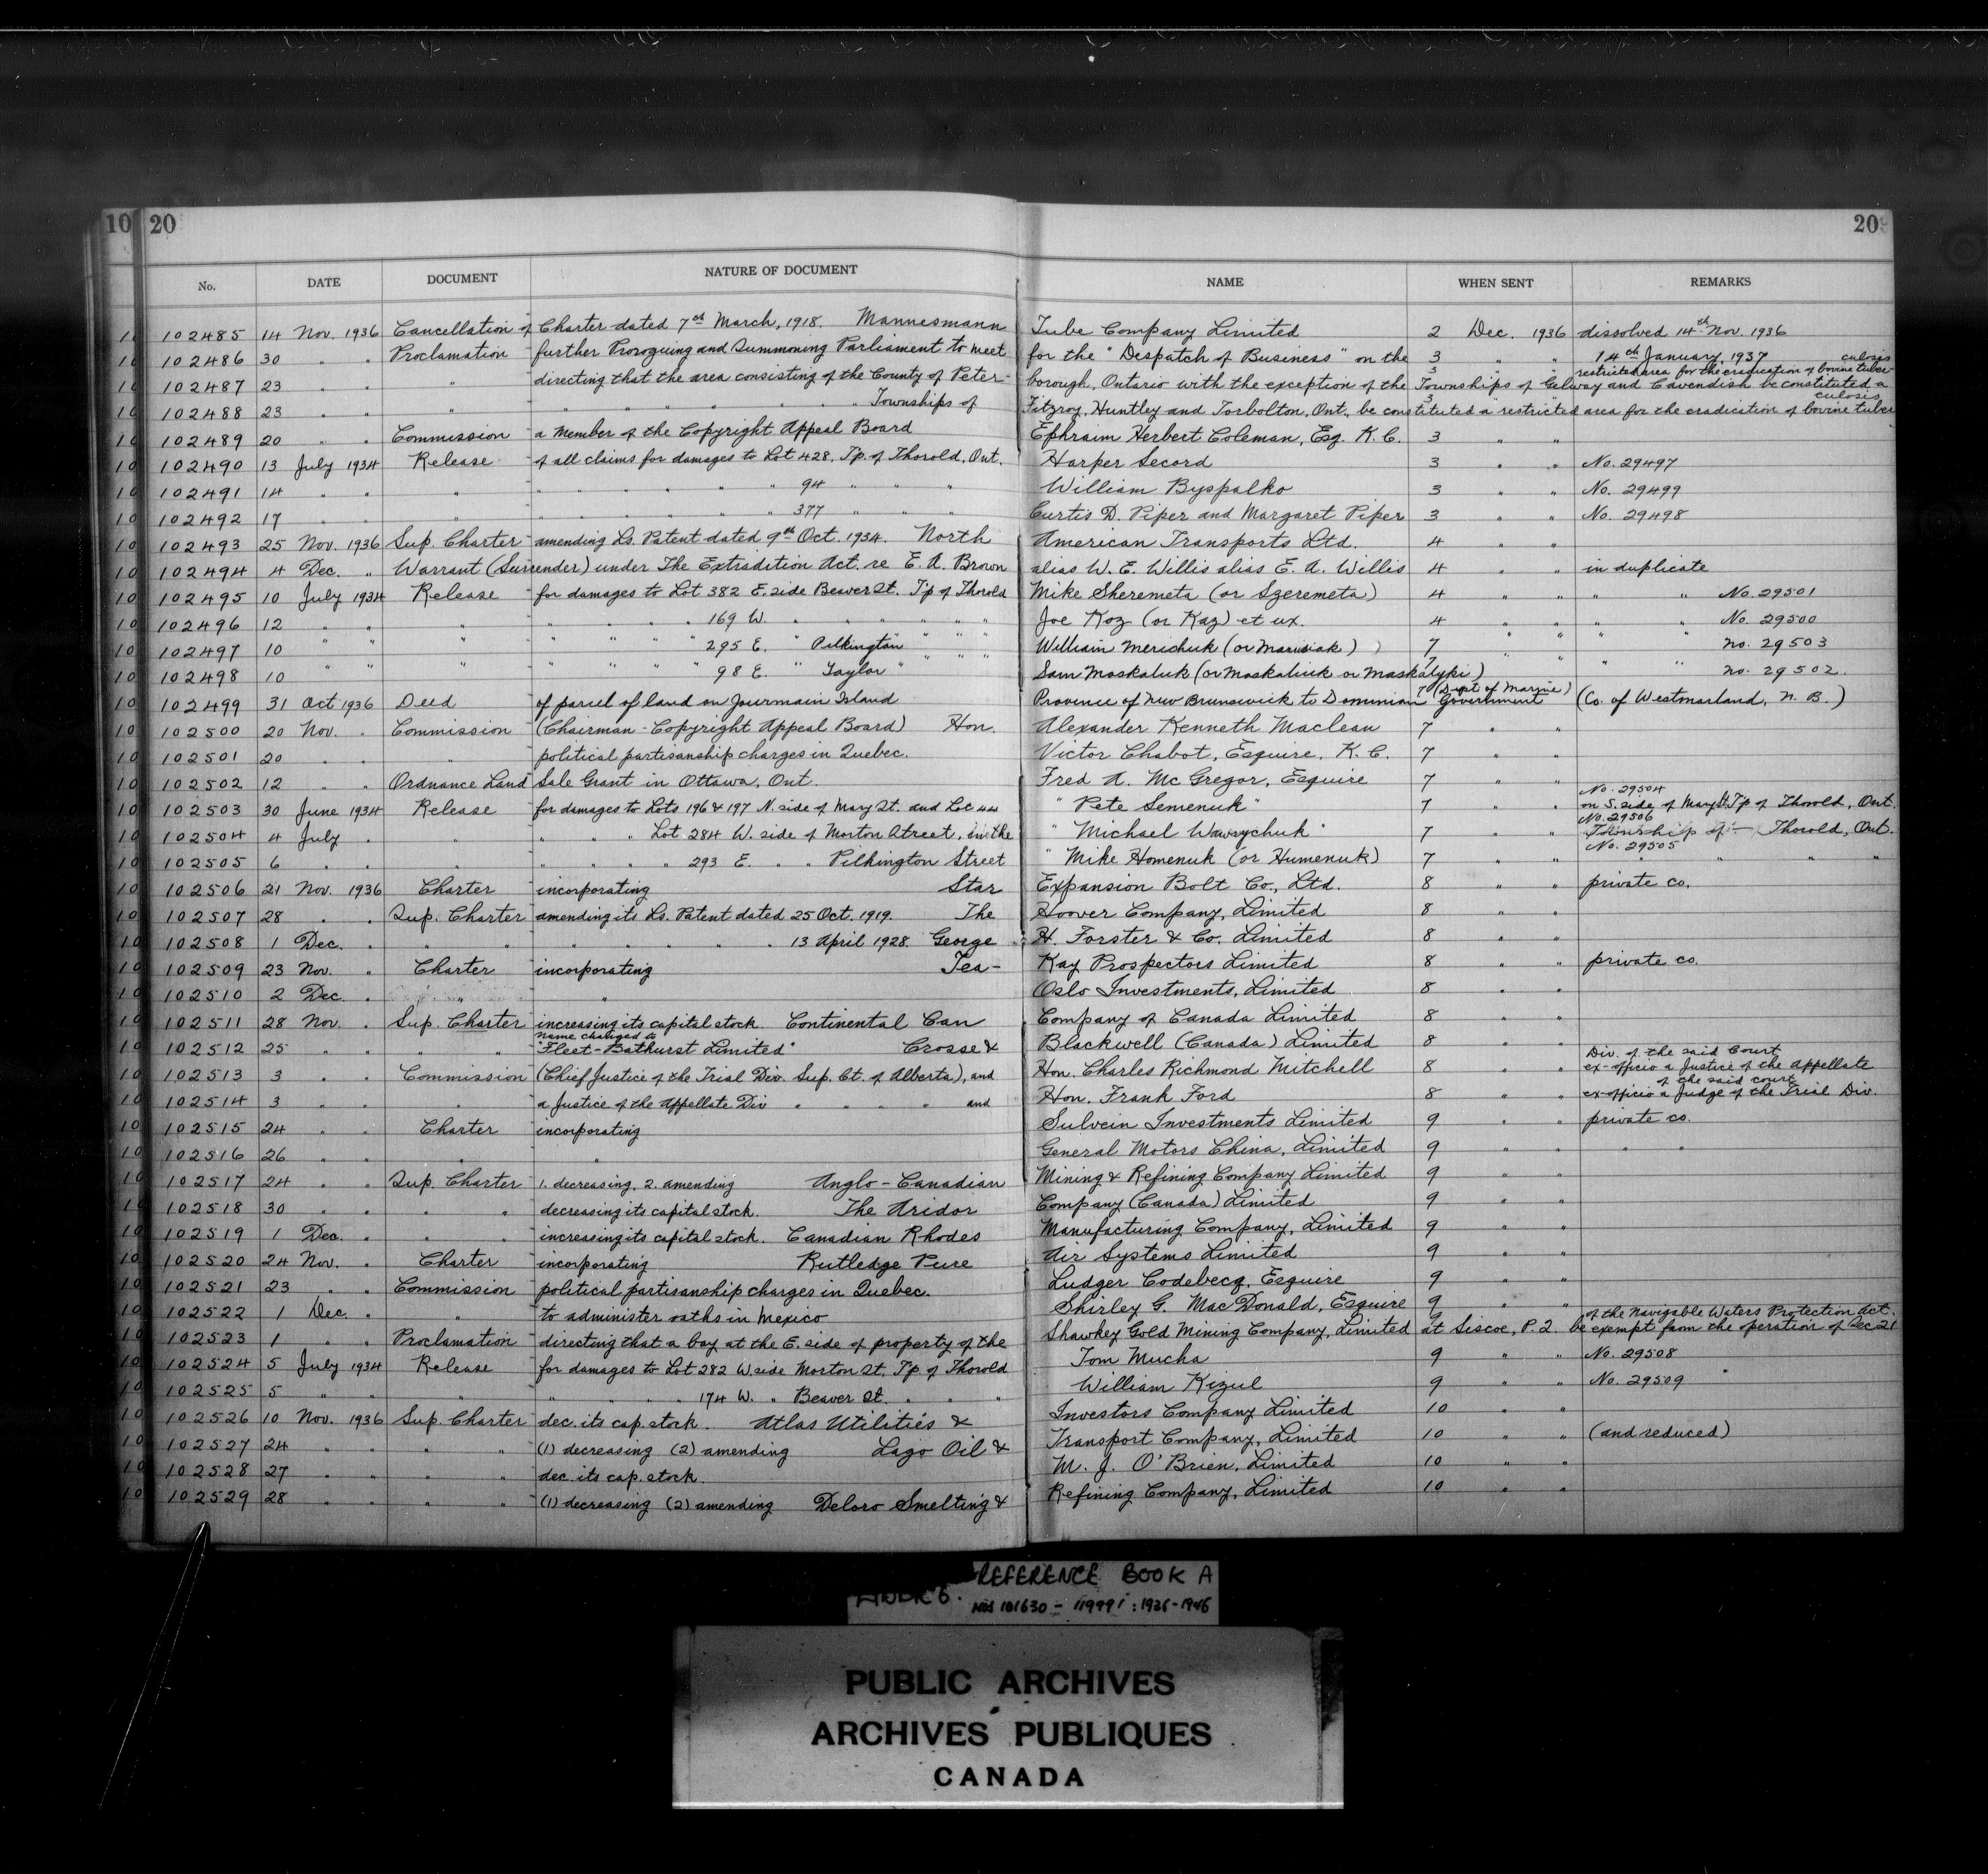 10 20
20
No. DATE DOCUMENT NATURE OF DOCUMENT NAME WHEN SENT REMARKS
102485 14 Nov. 1936 Cancellation of Charter dated 7th March, 1918. Mannesmann Tube Company Limited 2 Dec. 1936 dissolved 14th Nov. 1936
102486 30 " " Proclamation further Proroguing and Summoning Parliament to meet for the "Despatch of Business" on the 3 " " 14th January, 1937
culosis
restricted area for the eradication of bovine tuber
102487 23 " " " directing that the area consisting of the County of Peter- borough, Ontario with the exception of the Townships of Galway and Cavendish be constituted a
3 " " culosis
102488 23 " " " " " " " " " " Townships of Fitzroy, Huntley and Torbolton, Ont., be constituted a restricted area for the eradication of bovine tuber
102489 20 " " Commission a Member of the Copyright Appeal Board Ephraim Herbert Coleman, Esq. K.C. 3 " "
102490 13 July 1934 Release of all claims for damages to Lot 428, Tp. of Thorold, Ont. Harper Secord 3 " " No. 29497
102491 14 " " " " " " " " " 94 " " " William Byspalko 3 " " No. 29499
102492 17 " " " " " " " " " 377 " " " Curtis D. Piper and Margaret Piper 3 " " No. 29498
102493 25 Nov. 1936 Sup. Charter amending Ls. Patent dated 9th Oct. 1934. North American Transports Ltd. 4 " "
102494 4 Dec. " Warrant (Surrender) under The Extradition Act. re E. A. Brown alias W. E. Willis alias E. A. Willis 4 " " in duplicate
102495 10 July 1934 Release for damages to Lot 382 E. side Beaver St. Tp of Thorold Mike Sheremeta (or Szeremeta) 4 " " " " No. 29501
102496 12 " " " " " " " 169 W. " " " " " Joe Koz (or Kaz) et ux. 4 " " " " No. 29500
102497 10 " " " " " " " 295 E. " Pilkington " " " William Merichuk (or Marusiak) 7 " " " " No. 29503
102498 10 " " " " " " " 98 E. " Taylor " " " Sam Moskaluk (or Moskaliuk or Maskalyki) 7 " " " " No. 29502
102499 31 Oct 1936 Deed of parcel of land on Jourmain Island Province of New Brunswick to Dominion Government 7 (Dept of Marine) (Co. of Westmorland, N. B.)
102500 20 Nov. " Commission (Chairman - Copyright Appeal Board) Hon. Alexander Kenneth Maclean 7 " "
102501 20 " " " political partisanship charges in Quebec. Victor Chabot, Esquire, K. C. 7 " "
102502 12 " " Ordnance Land Sale Grant in Ottawa, Ont. Fred A. McGregor, Esquire 7 " "
No. 29504
102503 30 June 1934 Release for damages to Lots 196 & 197 N. side of Mary St. and Lot 44 " Pete Semenuk " 7 " " on S. side of Mary St. Tp of Thorold, Ont.
No. 29506
102504 4 July " " " " " Lot 284 W. side of Morton Street, in the " Michael Wawrychuk " 7 " " Township of — Thorold, Ont.
No. 29505
102505 6 " " " " " " " 293 E. " " Pilkington Street " Mike Homenuk (or Humenuk) 7 " " " " " "
102506 21 Nov. 1936 Charter incorporating Star Expansion Bolt Co., Ltd. 8 " " private co.
102507 28 " " Sup. Charter amending its Ls. Patent dated 25 Oct. 1919. The Hoover Company, Limited 8 " "
102508 1 Dec. " " " " " " " " 13 April 1928. George H. Forster & Co. Limited 8 " "
102509 23 Nov. " Charter incorporating Tea- Kay Prospectors Limited 8 " " private co.
102510 2 Dec. " " " Oslo Investments, Limited 8 " "
102511 28 Nov. " Sup. Charter increasing its capital stock. Continental Can Company of Canada Limited 8 " "
name changed to
102512 25 " " " " "Fleet-Bathurst Limited" Crosse & Blackwell (Canada) Limited 8 " "
Div. of the said Court
102513 3 " " Commission (Chief Justice of the Trial Div. Sup. Ct. of Alberta), and Hon. Charles Richmond Mitchell 8 " " ex-officio a Justice of the Appellate
of the said court
102514 3 " " " a Justice of the Appellate Div " " " " and Hon. Frank Ford 8 " " ex-officio a Judge of the Trial Div.
102515 24 " " Charter incorporating Sulvein Investments Limited 9 " " private co.
102516 26 " " " " General Motors China, Limited 9 " " " "
102517 24 " " Sup. Charter 1. decreasing, 2. amending Anglo-Canadian Mining & Refining Company Limited 9 " "
102518 30 " " " " decreasing its capital stock. The Aridor Company (Canada) Limited 9 " "
102519 1 Dec. " " " increasing its capital stock. Canadian Rhodes Manufacturing Company, Limited 9 " "
102520 24 Nov. " Charter incorporating Rutledge Pure Air Systems Limited 9 " "
102521 23 " " Commission political partisanship charges in Quebec. Ludger Codebecq, Esquire 9 " "
102522 1 Dec. " " to administer oaths in Mexico Shirley G. MacDonald, Esquire 9 " "
of the Navigable Waters Protection Act.
102523 1 " " Proclamation directing that a bay at the E. side of property of the Shawkey Gold Mining Company, Limited 9 at Siscoe, P.Q. be exempt from the operation of Sec 21
102524 5 July 1934 Release for damages to Lot 282 W. side Morton St. Tp of Thorold Tom Mucha 9 " " No. 29508
102525 5 " " " " " " " 174 W. " Beaver St. " " " William Kizul 9 " " No. 29509 "
102526 10 Nov. 1936 Sup. Charter dec. its cap. stock. Atlas Utilities & Investors Company Limited 10 " "
102527 24 " " " " (1) decreasing (2) amending Lago Oil & Transport Company, Limited 10 " " (and reduced)
102528 27 " " " " dec. its cap. stock. M. J. O'Brien, Limited 10 " "
102529 28 " " " " (1) decreasing (2) amending Deloro Smelting & Refining Company, Limited 10 " "
REFERENCE BOOK A
NOS 101630 - 119991 : 1936-1946
PUBLIC ARCHIVES
ARCHIVES PUBLIQUES
CANADA